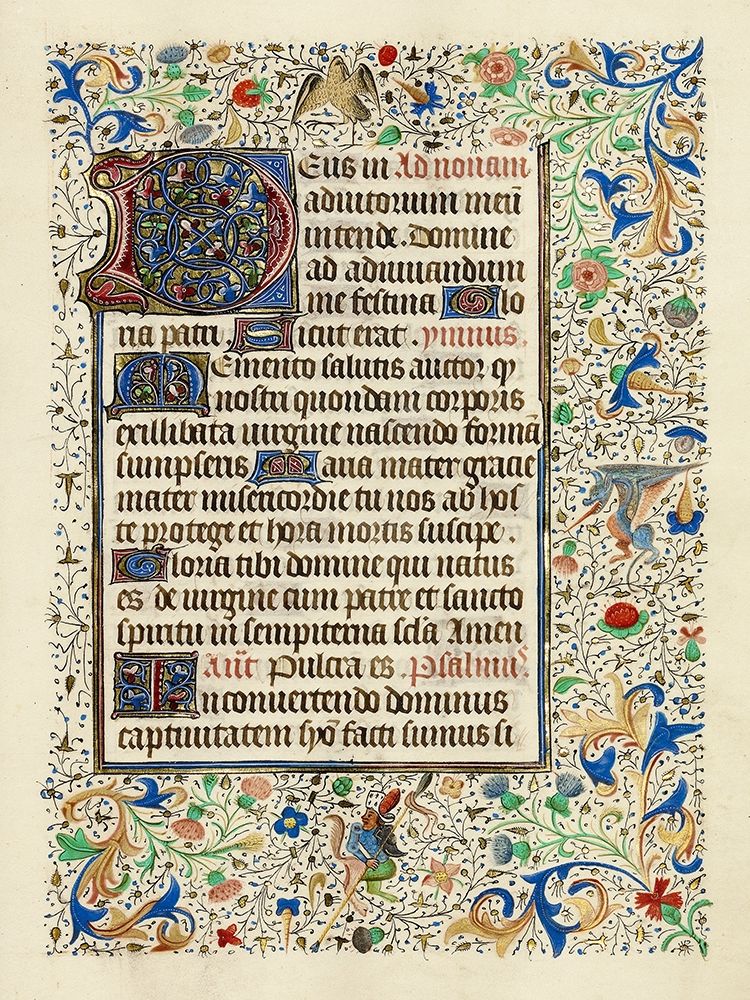 Deus in Ad nonam
adiutorium meū
intende. Domine
ad adiuuandum
me festina Glo
ria patri Sicut erat. ymnus.
Memento salutis auctor qɏ
nostri quondam corporis
ex illibata uirgine nascendo formā
sumpseris Maria mater gracie
mater misericordie tu nos ab hos
te protege et hora mortis suscipe.
Gloria tibi domine qui natus
es de uirgine cum patre et sancto
spiritu in sempiterna scl̄a Amen
Añt Pulcra es. Psalmus.
In conuertendo dominus
captiuitatem syō facti sumus si